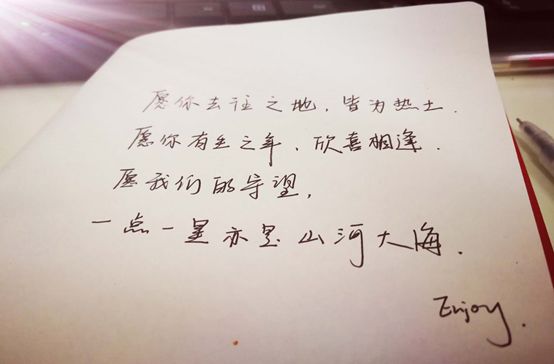 愿你去往之地，皆为热土．
愿你有生之年，欣喜相逢．
愿我们的守望，
一点一星亦是山河大海．
Enjoy.